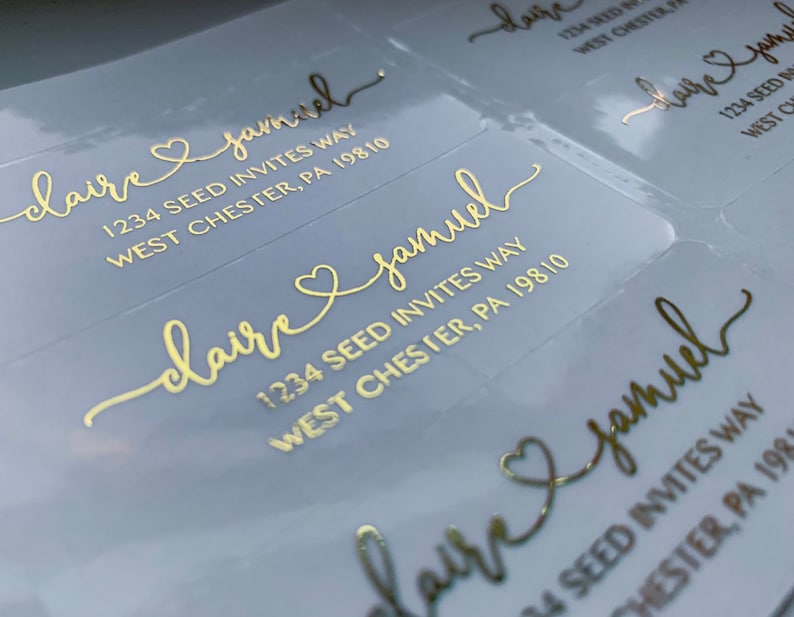 claire samuel
1234 SEED INVITES WAY
WEST CHESTER, PA 19810
claire samuel
1234 SEED INVITES WAY
WEST CHESTER, PA 19810
claire
1234 SEED INVITES WAY
WEST CHESTER, PA
claire samuel
1234 SEED
WEST
claire samuel
SEED INVITES WAY
CHESTER, PA